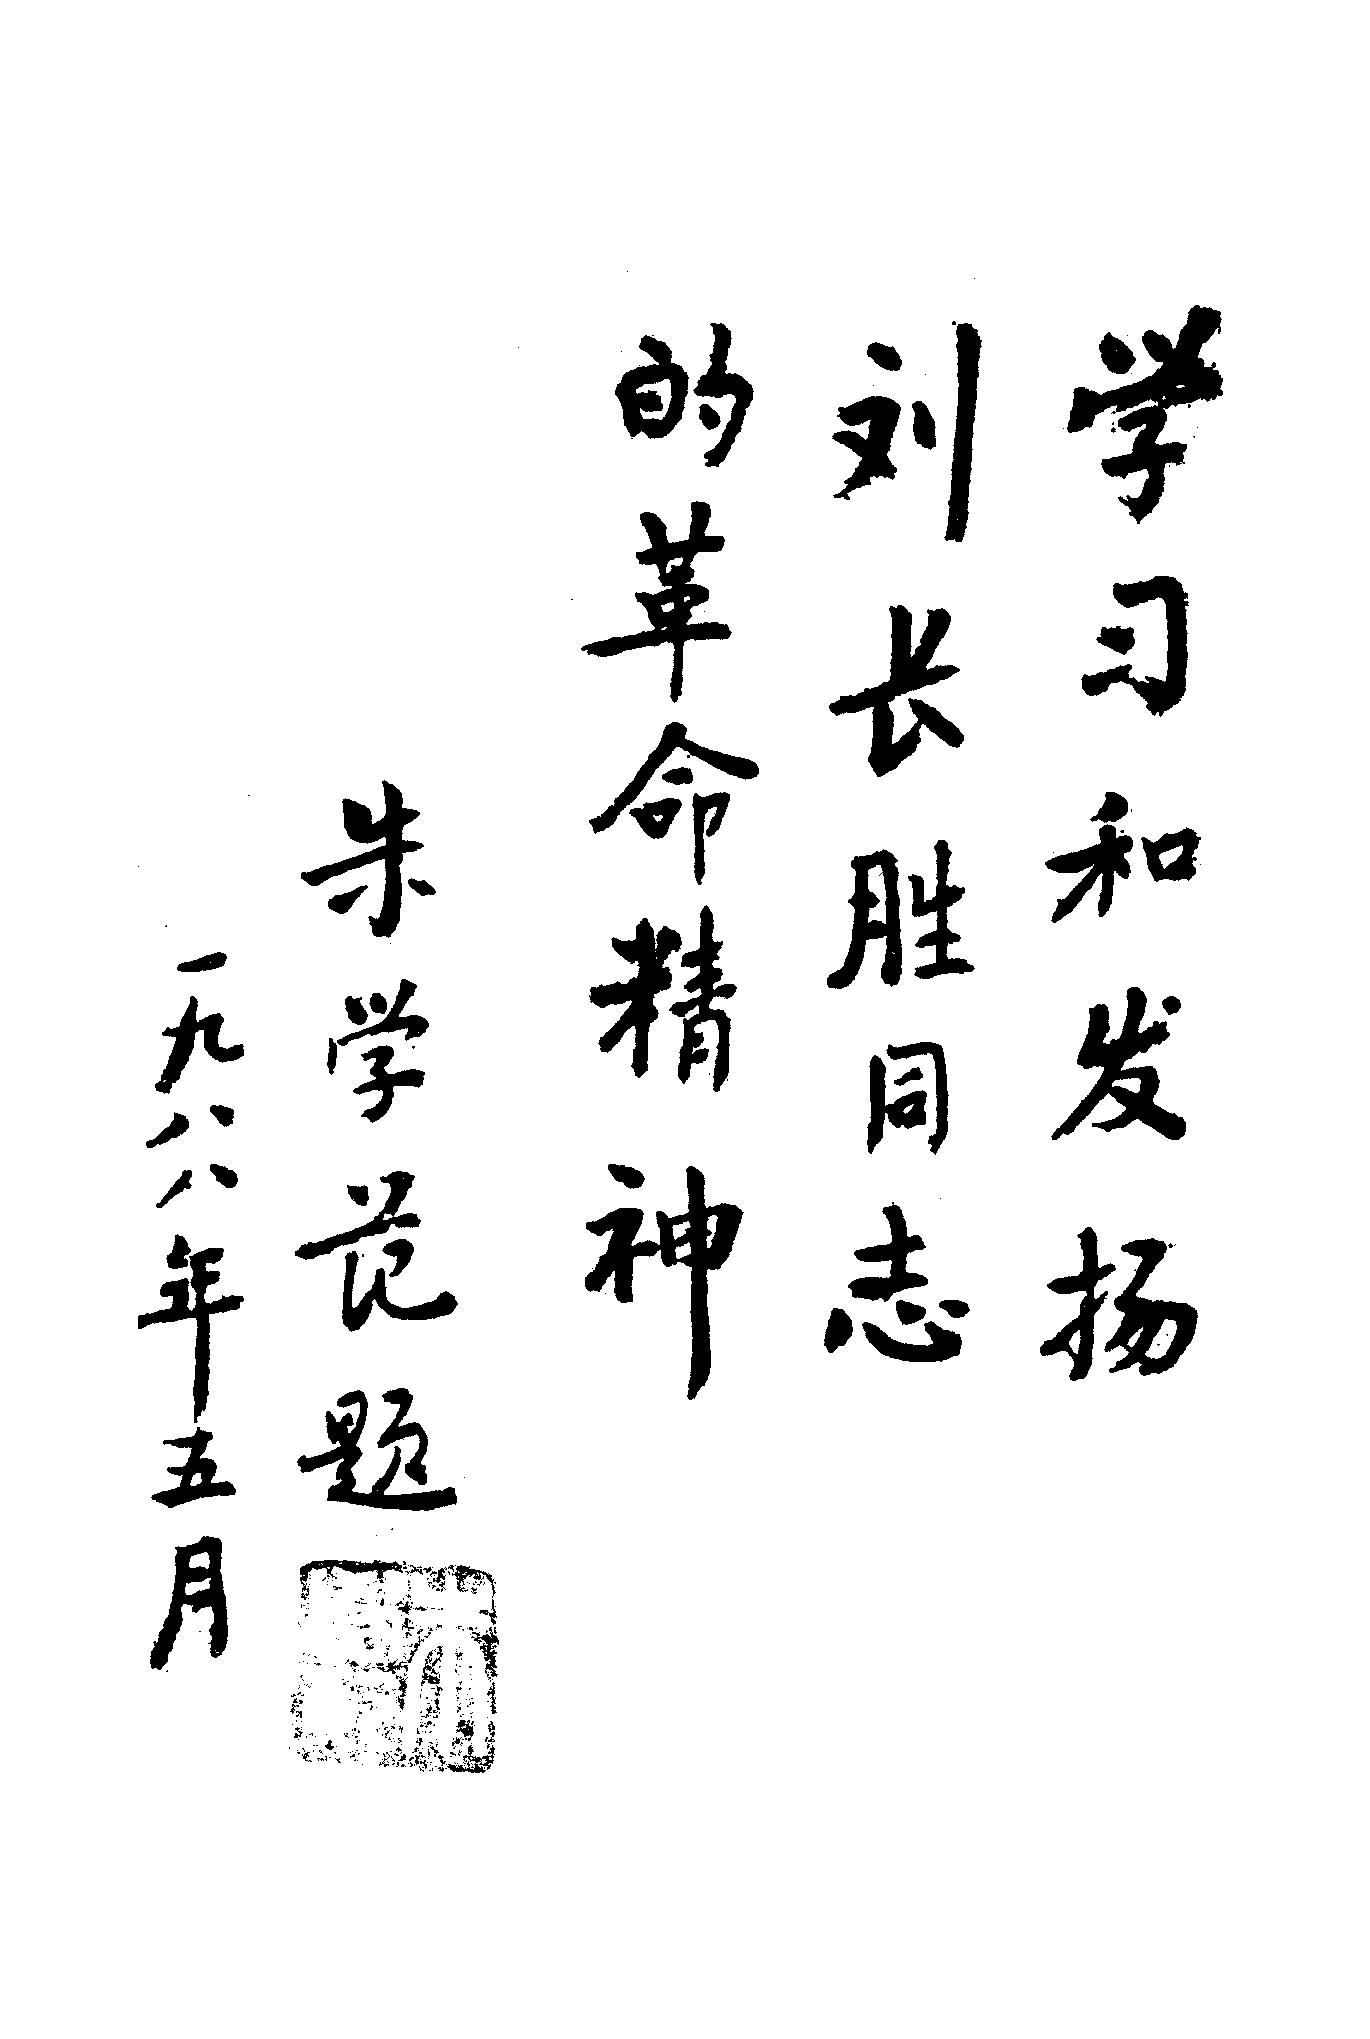 学习和发扬
刘长胜同志
的革命精神
朱学范题
一九八八年五月